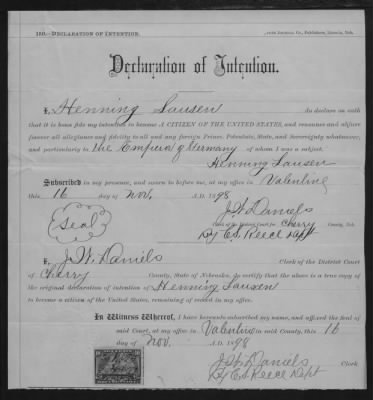 130.—DECLARATION OF INTENTION.
Journal Co., Publishers, Lincoln, Neb.
Declaration of Intention.
I, Henning Lausen do declare on oath
that it is bona fide my intention to become A CITIZEN OF THE UNITED STATES, and renounce and abjure
forever all allegiance and fidelity to all and any foreign Prince, Potentate, State, and Sovereignty whatsoever,
and particularly to the Emperor of Germany of whom I was a subject.
Henning Lausen
Subscribed in my presence, and sworn to before me, at my office in Valentine
this 16 day of Nov, A.D. 1898
Seal
J W Daniels
Clerk of the District Court for Cherry County, Neb.
By C S Reece Dept
I, J. W. Daniels Clerk of the District Court
of Cherry County, State of Nebraska, do certify that the above is a true copy of
the original declaration of intention of Henning Lausen
to become a citizen of the United States, remaining of record in my office.
In Witness Whereof, I have hereunto subscribed my name, and affixed the seal of
said Court, at my office in Valentine in said County, this 16
day of Nov. 1898
J W Daniels Clerk
By C S Reece Dept